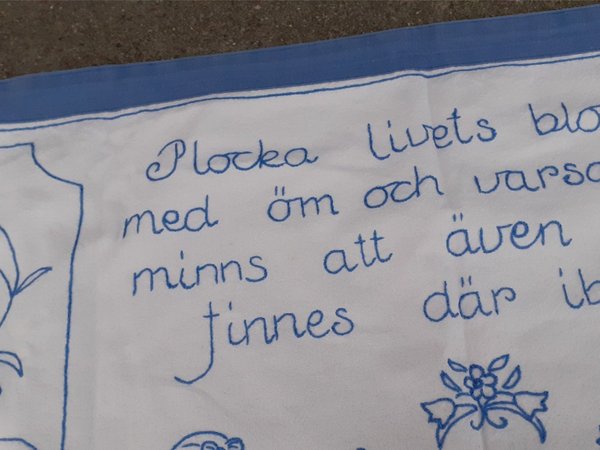 Plocka livets blo
med öm och varsa
minns att även
finnes där ib